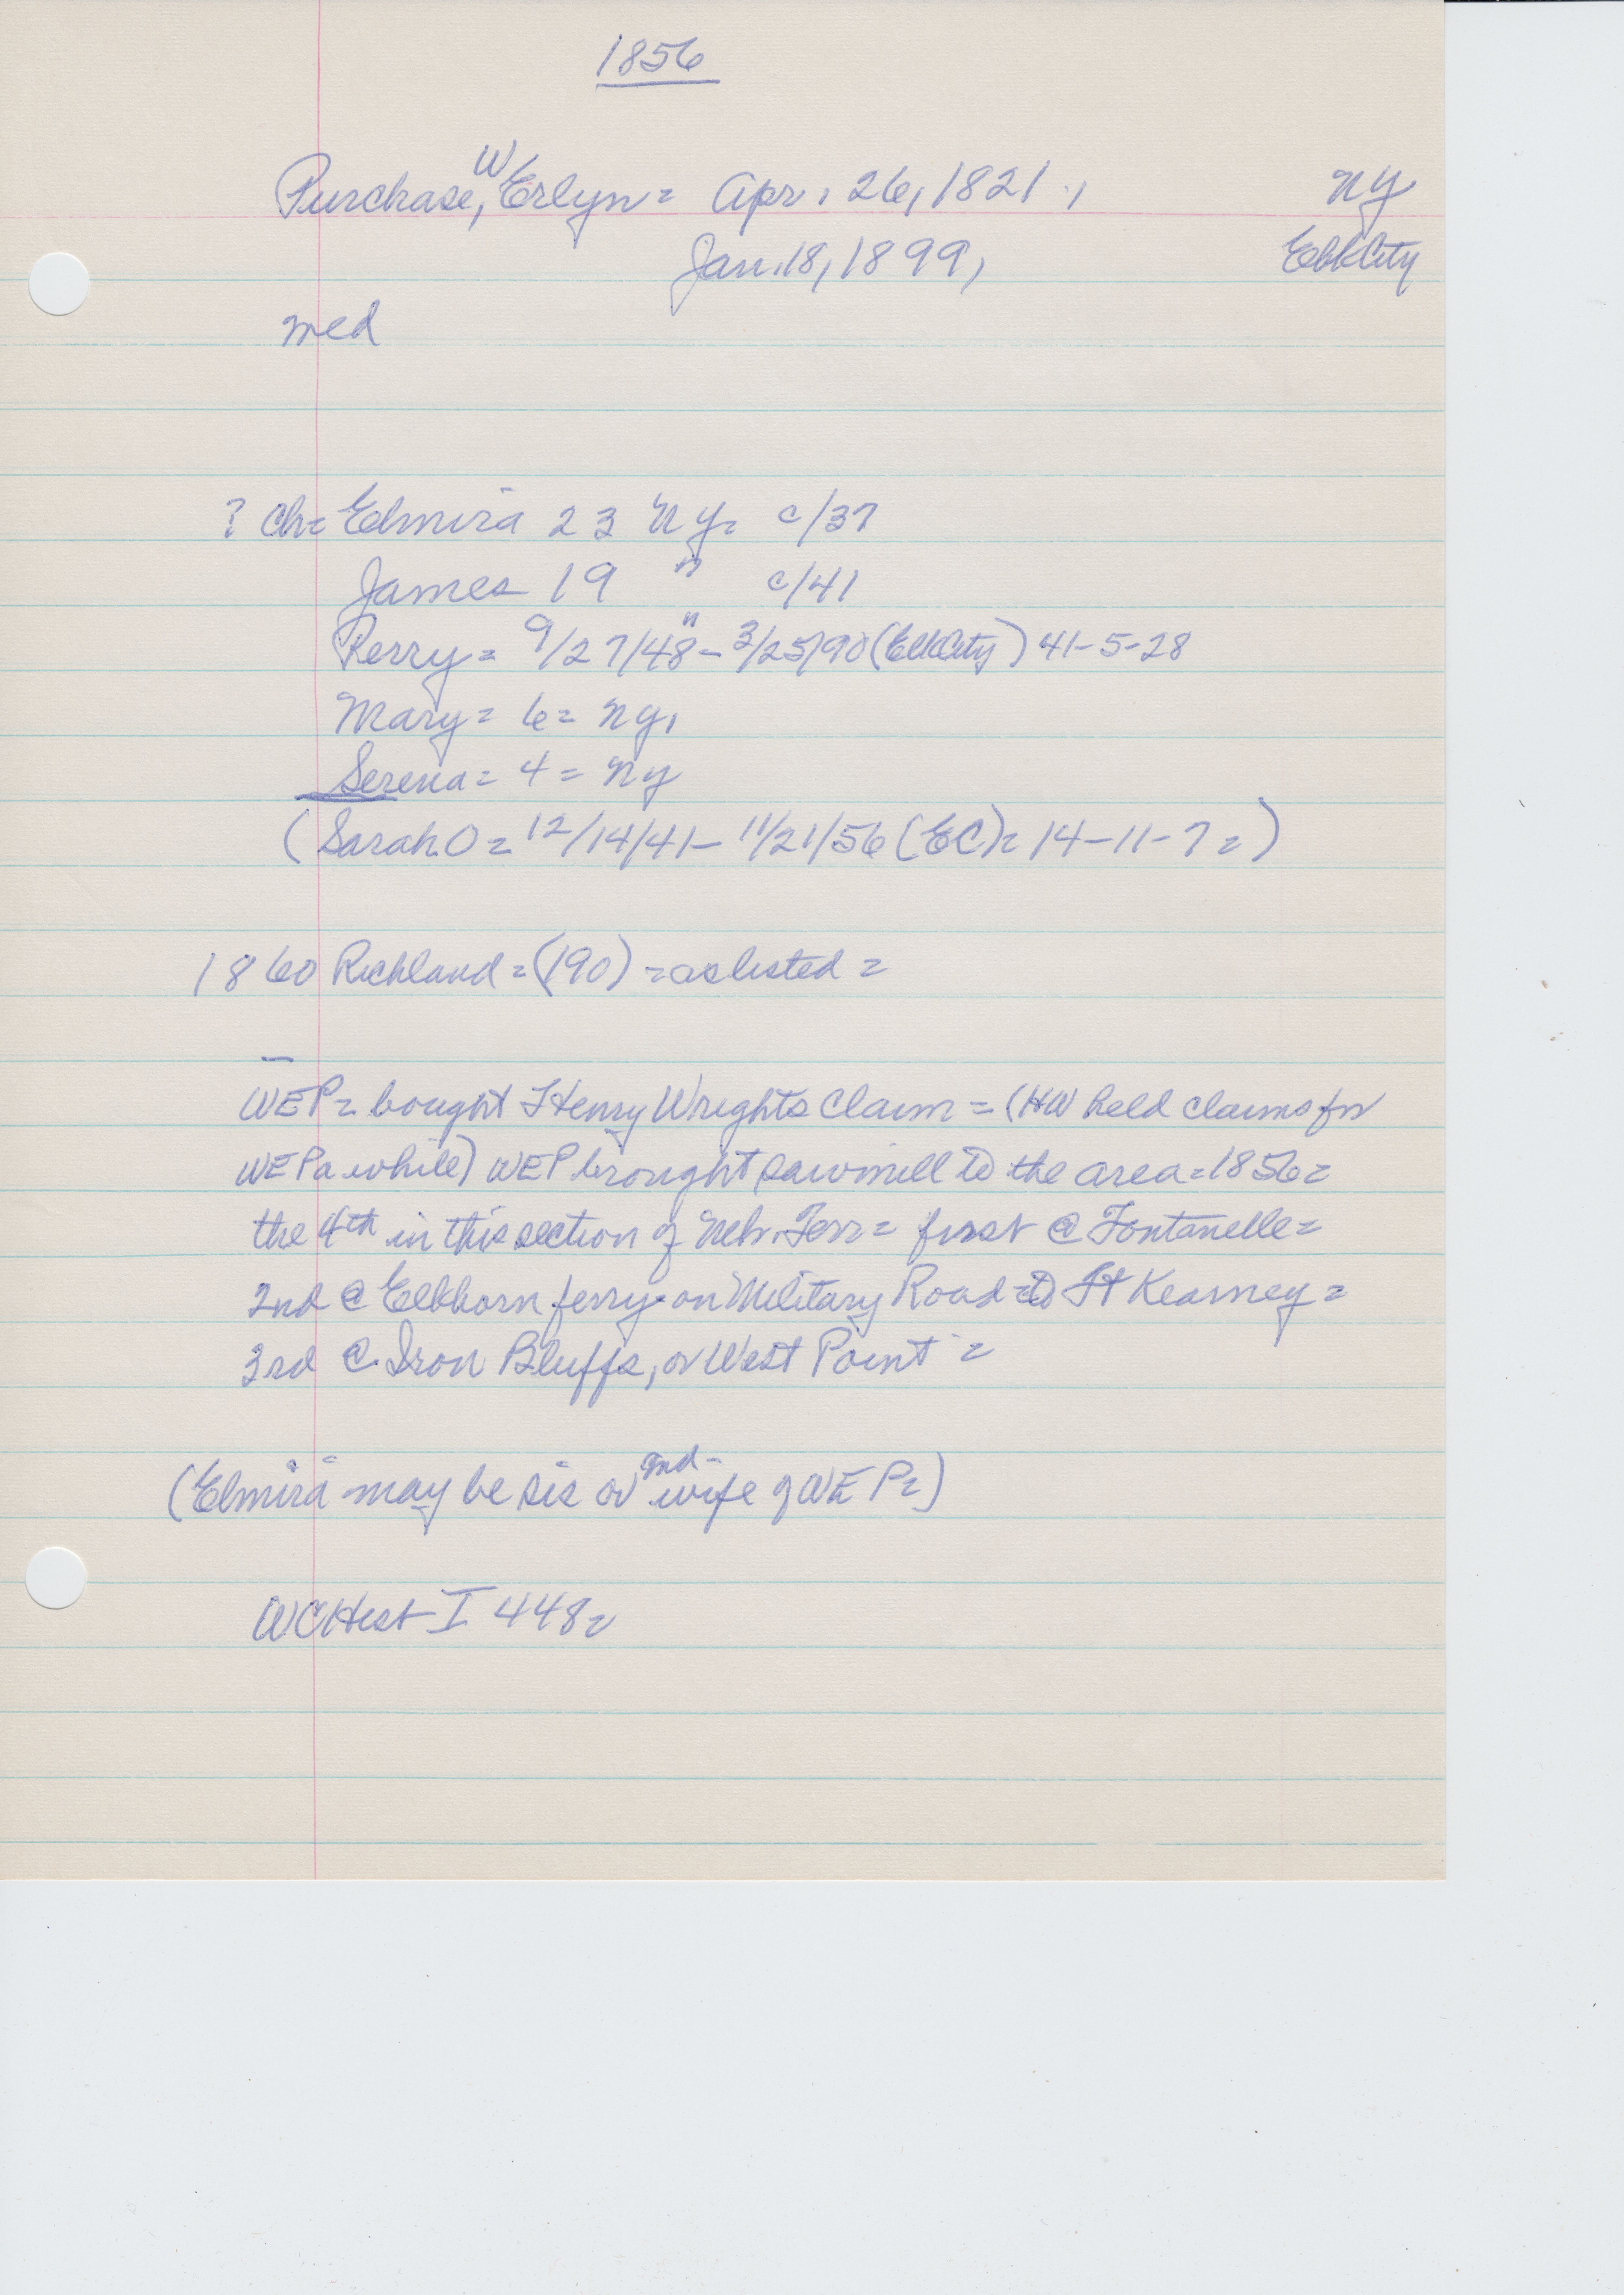 1856
Purchase, W Erlyn = Apr. 26, 1821., NY
Jan. 18, 1899, Elk City
med
? Ch= Elmira 23 NY= c/37
James 19 " c/41
Perry = 9/27/48 - 3/25/90 (Elk City) 41-5-28
Mary = 6 = NY,
Serena = 4 = NY
(Sarah O = 12/14/41 - 11/21/56 (EC) = 14-11-7 =)
1860 Richland = (190) = as listed =
WEP = bought Henry Wrights Claim = (HW held claims for
WEP a while) WEP brought sawmill to the area = 1856 =
the 4th in this section of Neb. Terr = first @ Fontanelle =
2nd @ Elkhorn ferry on Military Road to Ft Kearney =
3rd @ Iron Bluffs, or West Point =
(Elmira may be sis or 2nd wife of WEP =)
WCHist I 448 =